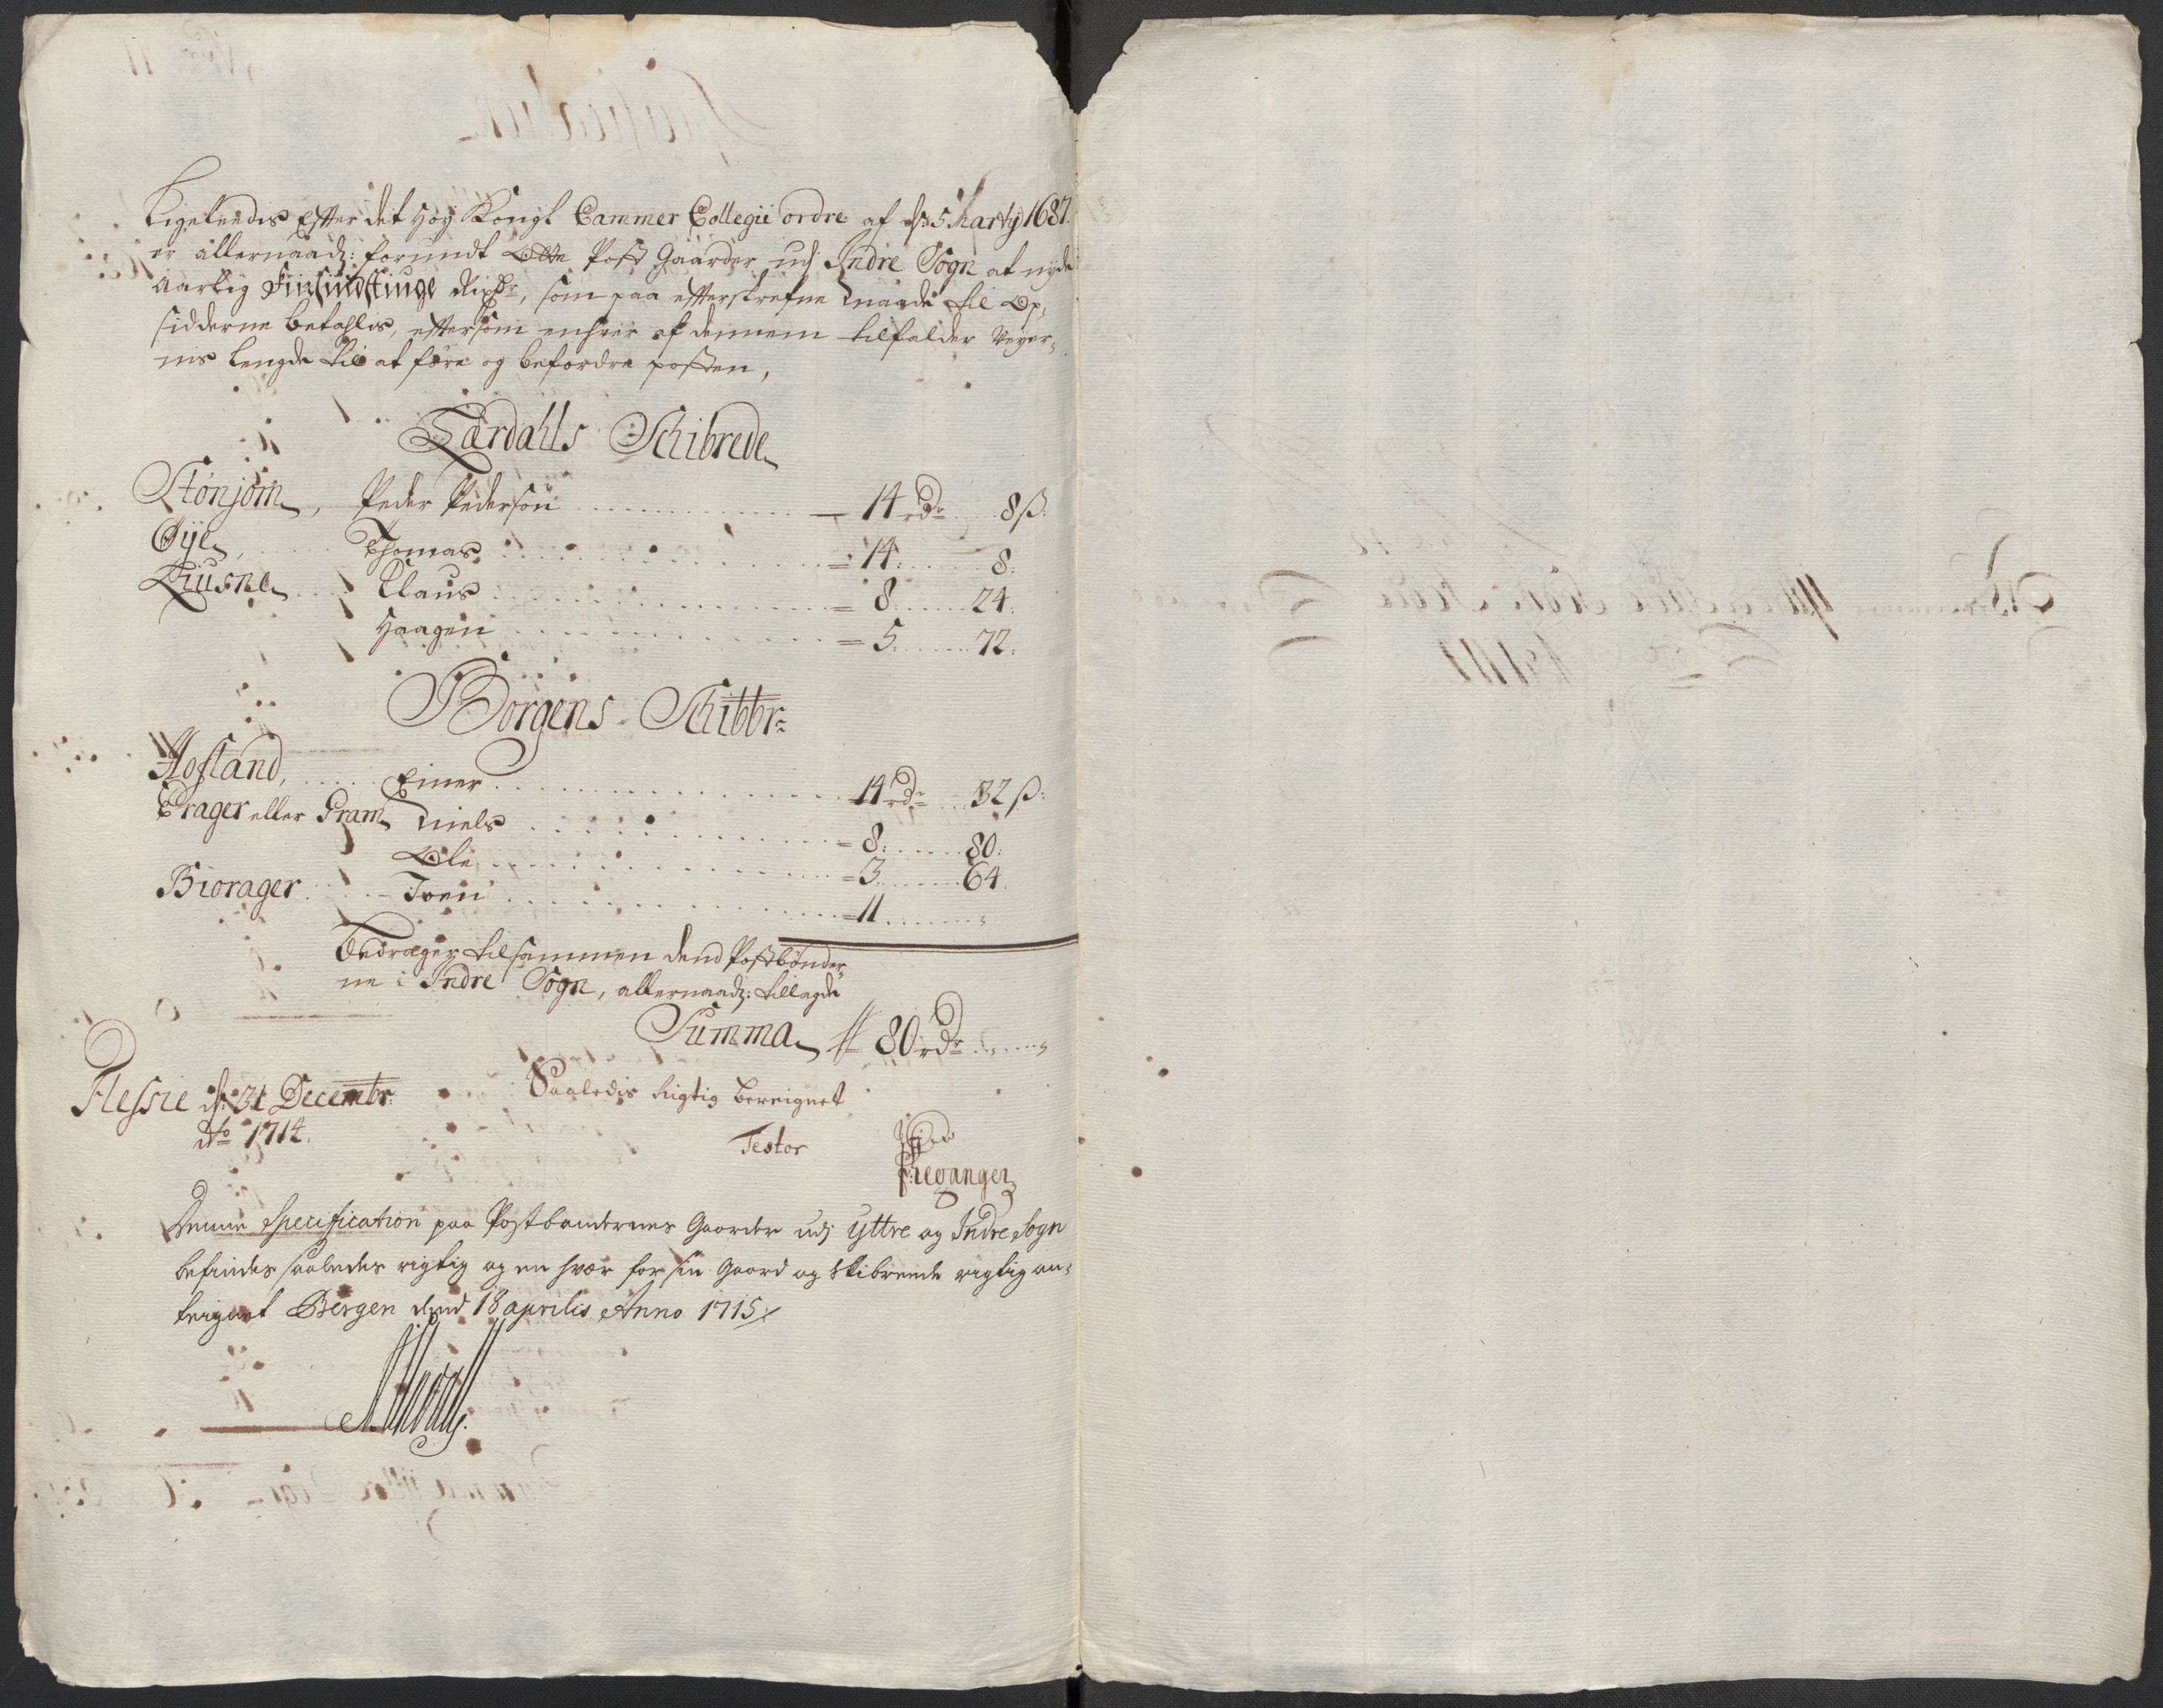 Ligeleedis Effter det Høÿ Kongl Cammer Collegii ordre af d: 5 Martÿ 1687.
er allernaad: forundt Otte Post Gaarder udj Indre Sogn at nÿde
Aarlig Firsindstiuge Rixdr, som paa effterskrefne Maade til Op„
sidderne betahlis, efftersom enhver af dennem tilfalder Veyer„
nis Lengde til at føre og befordre posten,
Lærdahls Schibrede
Stønjom, Peder Pedersøn 14 rdr 8 ß:
Øÿe, Thomas 14: 8:
Liusne Claus 8 24:
Haagen 5 72:
Borgens Schibbr:
Hofland, Einer 14 rdr 32 ß:
Crager eller Gram Niels 8: 80:
Ole 3 64
Biorager Iven 11
Bedrager tilsammen dend Postbønder„
ne i Indre Sogn, allernaad: tillagde
Summa 80 rdr
Flessie d: 31 Decembr: Saaledis Rigtig bereignet
Ao 1714. Testor
Denne Specification paa Postbøndernes Gaarder udj Yttre og Indre Sogn
befindes saaledes rigtig og en hver for sin Gaard og Skibrede rigtig an„
teignet Bergen dend 18 aprilis Anno 1715